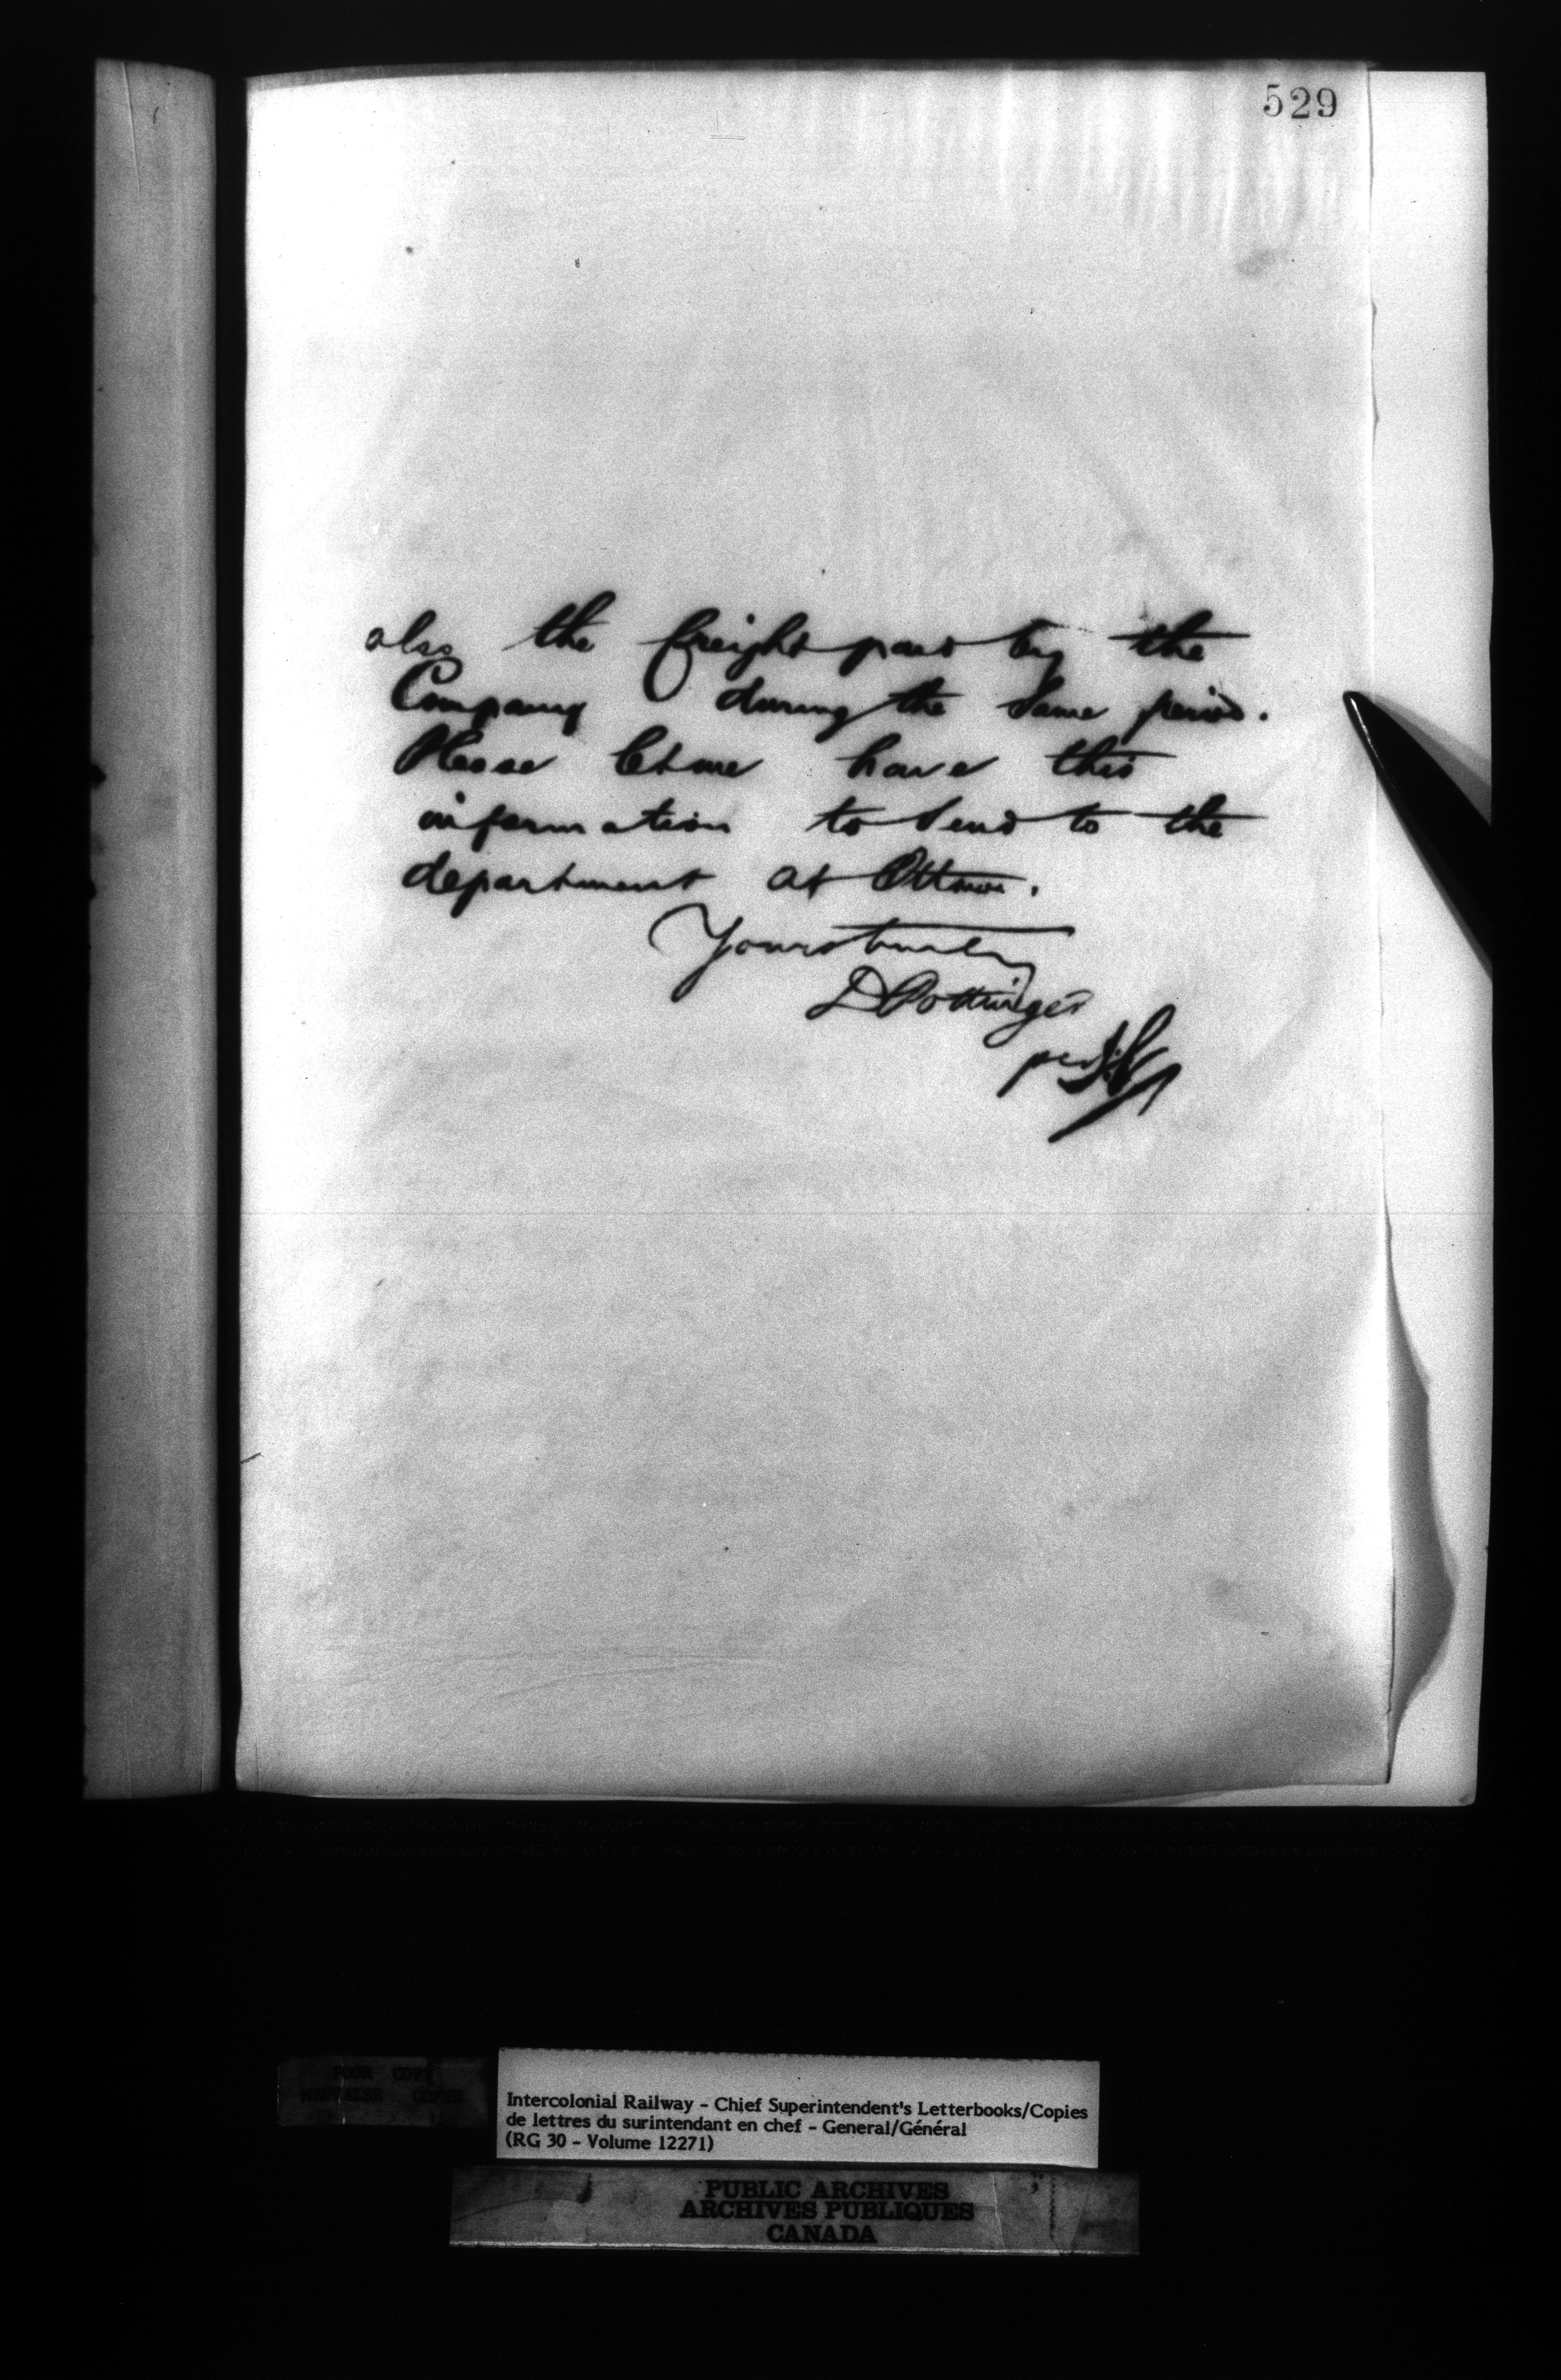 529
also the freight paid by the
Company during the same period.
Please let me have this
information to send to the
department at Ottawa.
Yours truly
D Pottinger
per
POOR COPY
MAUVAISE COPIE
Intercolonial Railway - Chief Superintendent's Letterbooks/Copies
de lettres du surintendant en chef - General/Général
(RG 30 - Volume 12271)
PUBLIC ARCHIVES
ARCHIVES PUBLIQUES
CANADA